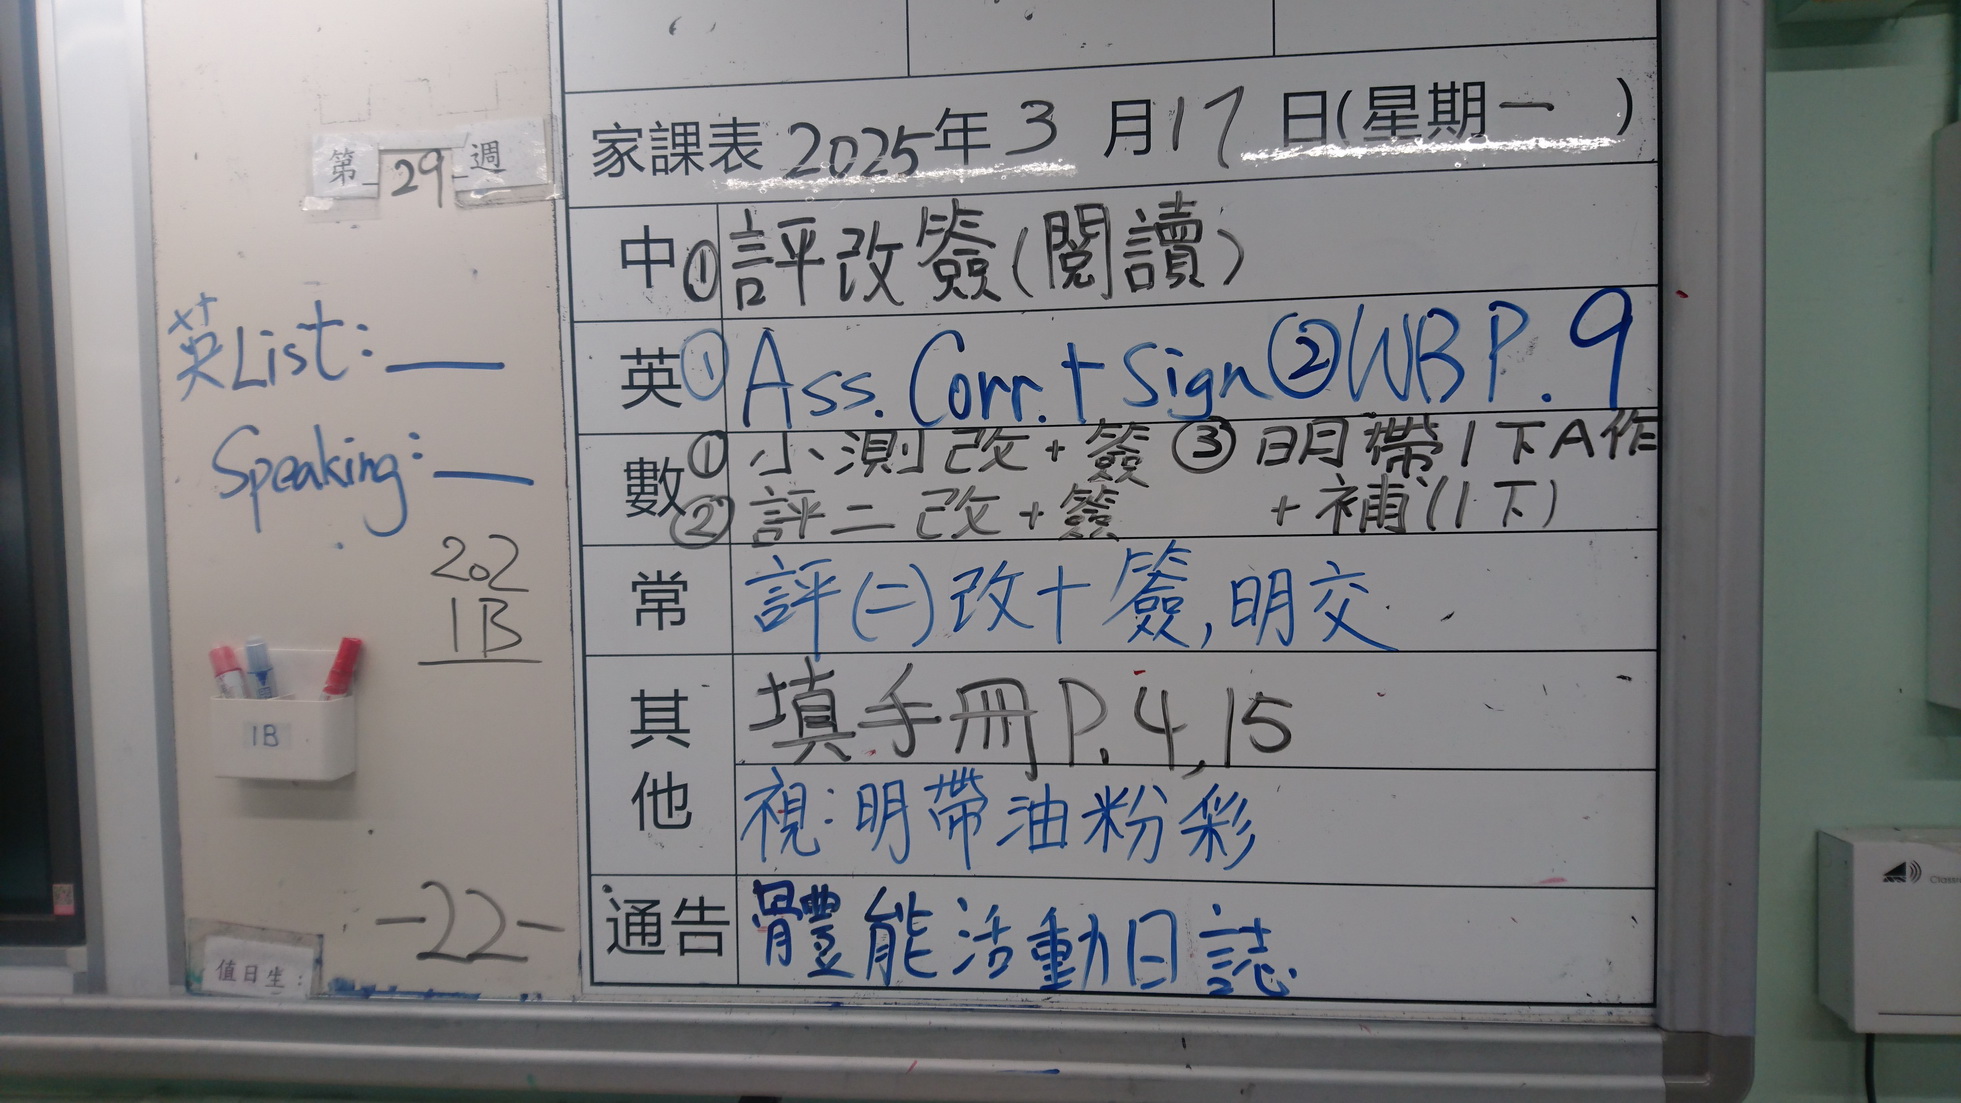 第 29 週
英List: __
Speaking: __
202
1B
1B
-22-
值日生:
家課表 2025年 3 月 17 日(星期一 )
中 ① 評改簽(閱讀)
英 ① Ass. Corr. + Sign ② WB P. 9
數 ① 小測改+簽 ③ 明帶1下A作
② 評二改+簽 +補(1下)
常 評(二)改+簽,明交
其他 填手冊P.4,15
視:明帶油粉彩
通告 體能活動日誌